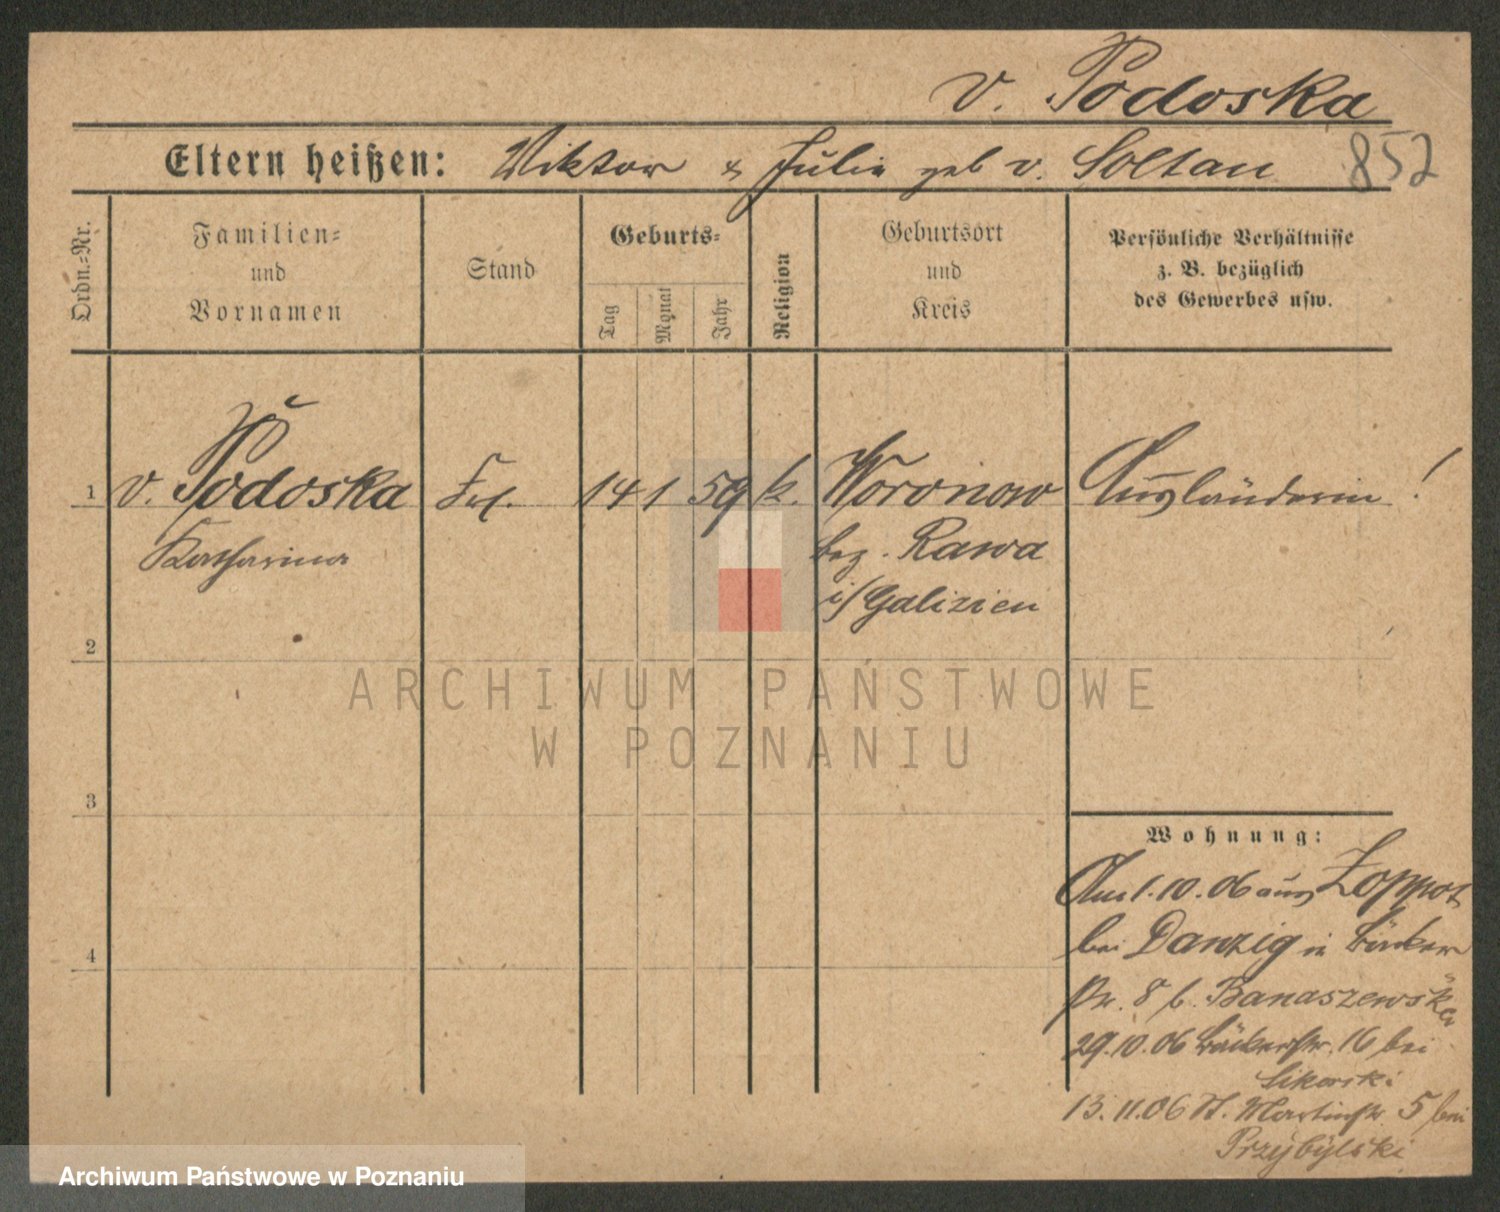 v. Podoska
Eltern heißen: Viktor & Julie geb v. Soltan
852
Ordn.-Nr.
Familien-
und
Vornamen
Stand
Geburts-
Tag
Monat
Jahr
Religion
Geburtsort
und
Kreis
Persönliche Verhältnisse
z. B. bezüglich
des Gewerbes usw.
1 v. Podoska Frl. 14 1 59 k. Woronow Ausländerin!
Katharina bez. Rawa
i/Galizien
2
3
4
Wohnung:
Am 1.10.06 aus Zoppot
bei Danzig in Bäcker
str. 8 b. Banaszewska
29.10.06 Bäckerstr. 16 bei
Sikorski
13.11.06 St. Martinstr. 5 bei
Przybylski
ARCHIWUM PAŃSTWOWE
W POZNANIU
Archiwum Państwowe w Poznaniu